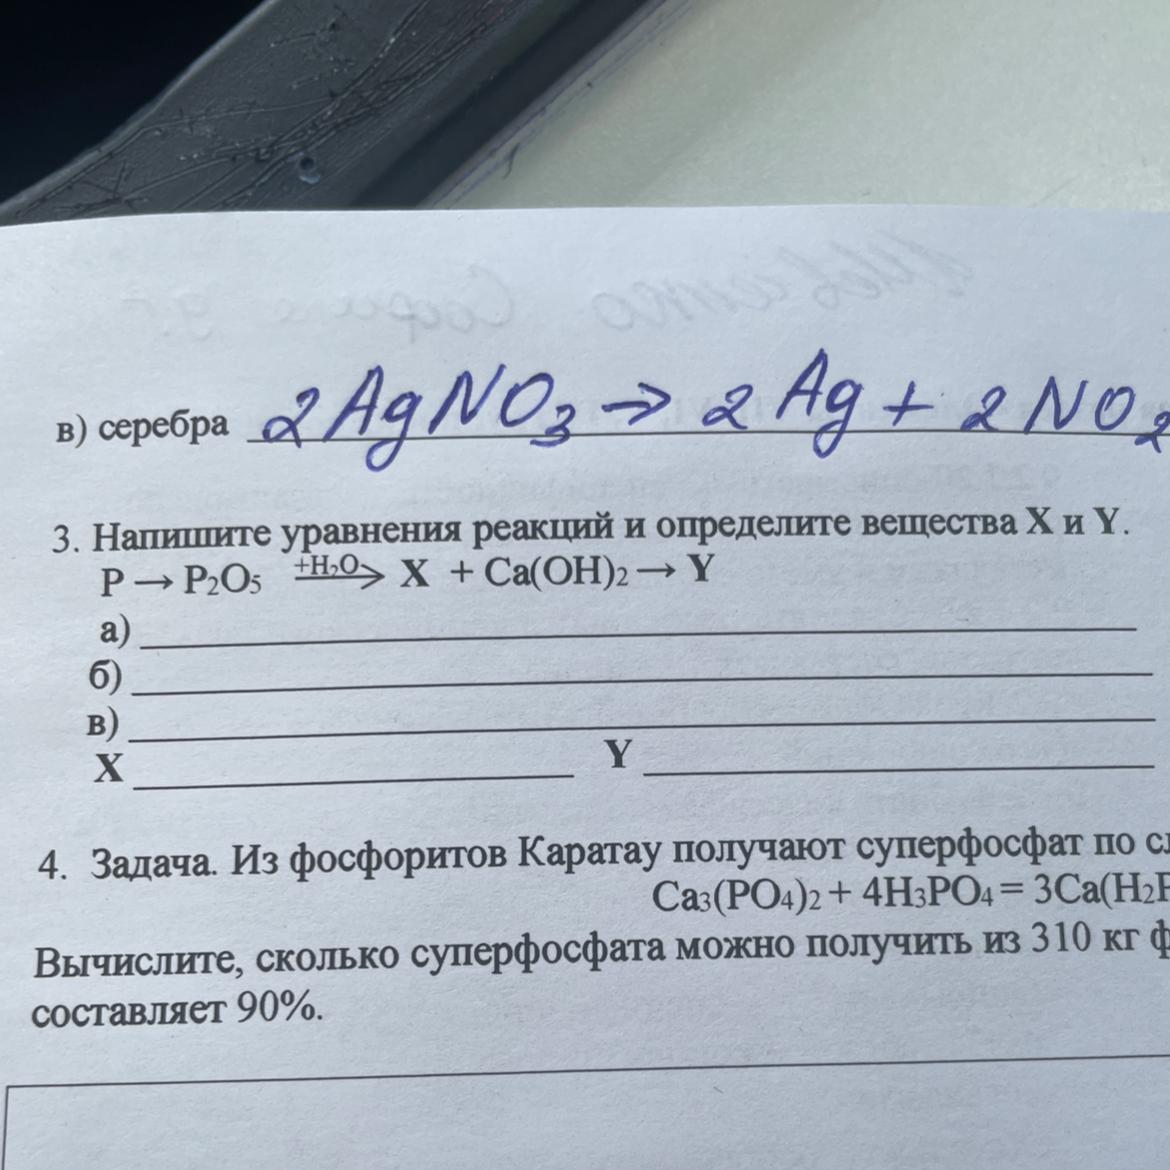 в) серебра 2AgNO₃ → 2Ag + 2NO₂
3. Напишите уравнения реакций и определите вещества X и Y.
P → P₂O₅ +H₂O → X + Ca(OH)₂ → Y
а)
б)
в)
X Y
4. Задача. Из фосфоритов Каратау получают суперфосфат по
Ca₃(PO₄)₂ + 4H₃PO₄ = 3Ca(H₂
Вычислите, сколько суперфосфата можно получить из 310 кг
составляет 90%.